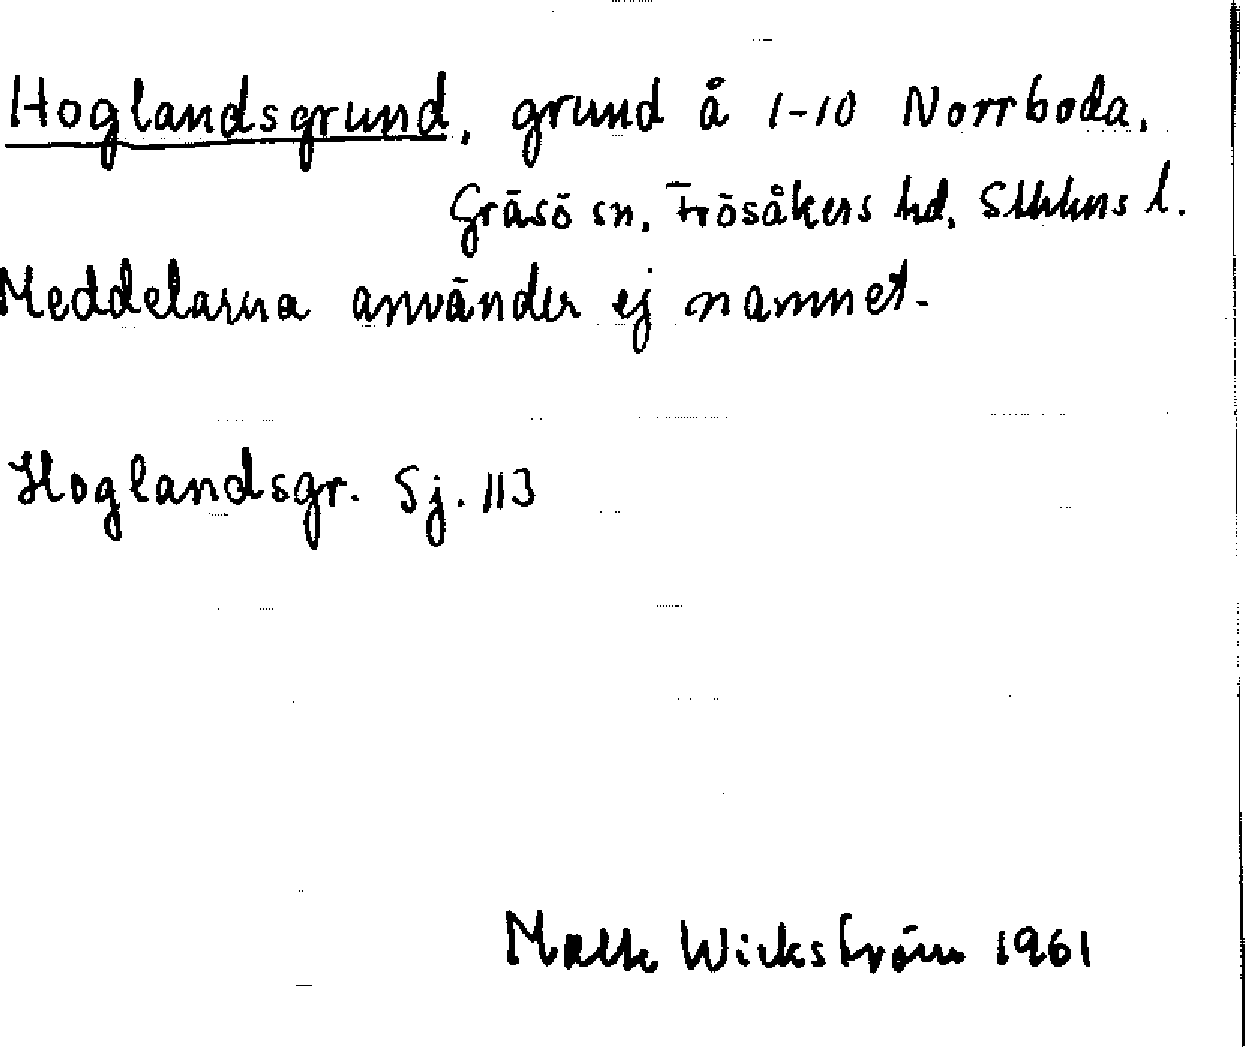 Hoglandsgrund, grund å 1-10 Norrboda,
Gräsö sn, Frösåkers hd, Sthlms l.
Meddelarna använder ej namnet.
Hoglandsgr. Sj. 113
Malte Wickström 1961